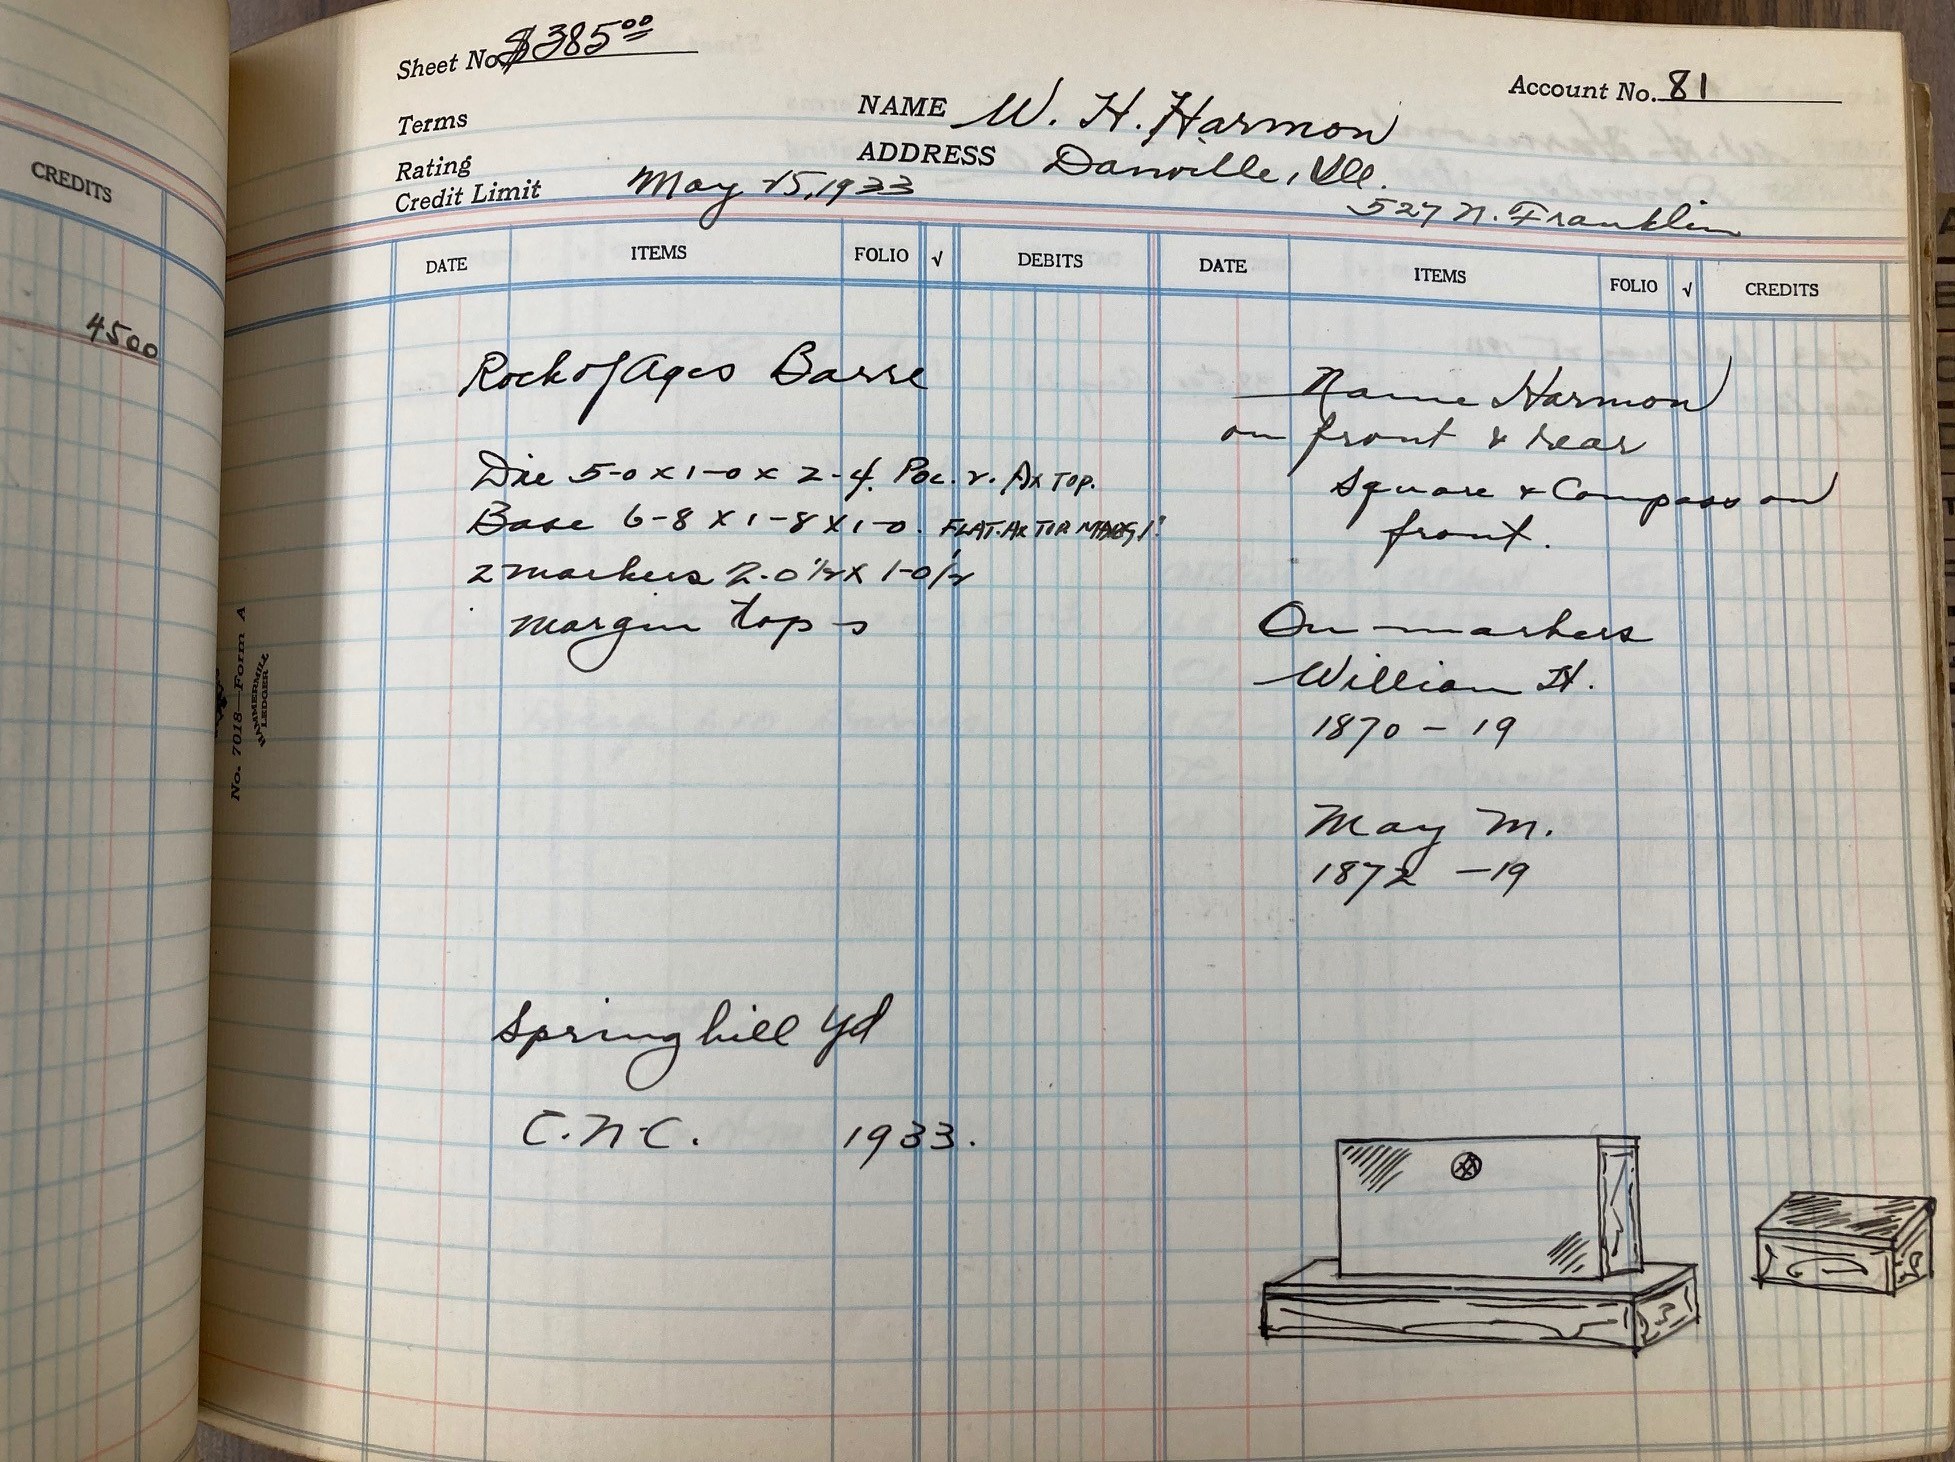 CREDITS
4500
Sheet No. $385.00
Account No. 81
Terms
NAME W. H. Harmon
Rating
ADDRESS Danville, Ill.
Credit Limit May 15, 1933
527 N. Franklin
DATE ITEMS FOLIO √ DEBITS DATE ITEMS FOLIO √ CREDITS
Rock of Ages Barre
Die 5-0 x 1-0 x 2-4. Pol. 2. Ax TOP.
Base 6-8 x 1-8 x 1-0. FLAT. Ax TOP 1"
2 markers 2-0 1/2 x 1-0 1/2
margin tops
Springhill Yd
C.N.C. 1933.
Name Harmon
on front & rear
Square & Compass on
front.
On markers
William H.
1870 - 19
May M.
1872 - 19
No. 7018—Form A
HAMMERMILL
LEDGER